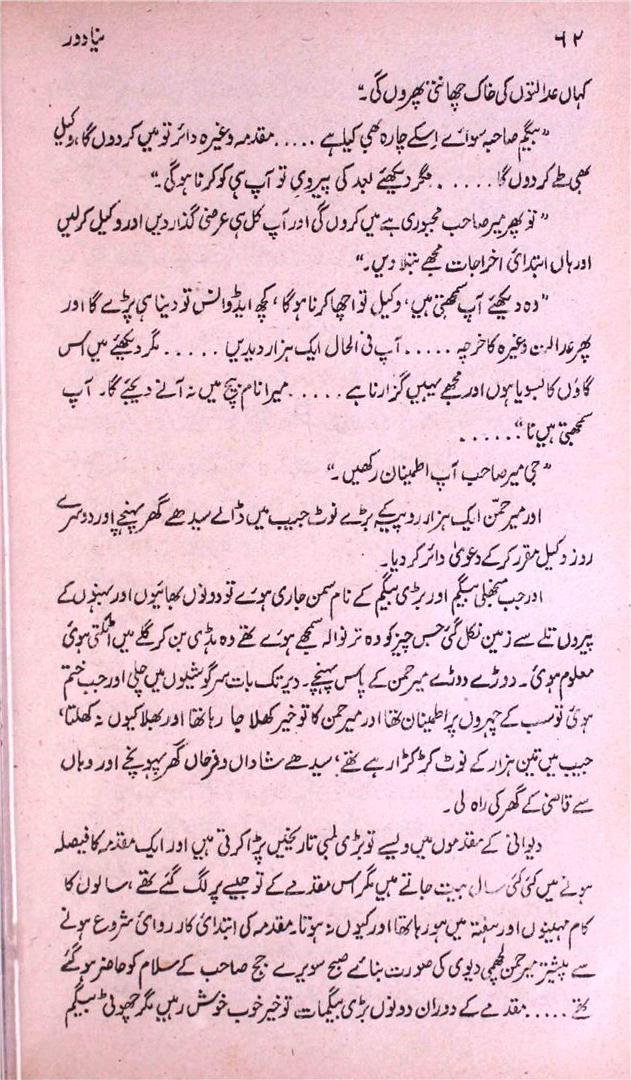 ۶۲ نیا دور
کہاں عدالتوں کی خاک چھانتی پھروں گی۔"
"بیگم صاحبہ سوائے اسکے چارہ بھی کیا ہے ..... مقدمہ وغیرہ دائر تو میں کر دوں گا، وکیل
بھی طے کر دوں گا ...... مگر دیکھئے بعد کی پیروی تو آپ ہی کو کرنا ہوگی۔"
"تو پھر میر صاحب مجبوری ہے میں کروں گی اور آپ کل ہی عرضی گذار دیں اور وکیل کرلیں
اور ہاں ابتدائی اخراجات مجھے بتلا دیں۔"
"وہ دیکھئے آپ سمجھتی ہیں، وکیل تو اچھا کرنا ہوگا، کچھ ایڈوانس تو دینا ہی پڑے گا اور
پھر عدالت وغیرہ کا خرچہ ..... آپ فی الحال ایک ہزار دیدیں ..... مگر دیکھئے میں اس
گاؤں کا بسویا ہوں اور مجھے یہیں گزارنا ہے ..... میرا نام بیچ میں نہ آنے دیجئے گا۔ آپ
سمجھتی ہیں نا" ......
"جی میر صاحب آپ اطمینان رکھیں۔"
اور میر حمّن ایک ہزار روپیہ کے بڑے نوٹ جیب میں ڈالے سیدھے گھر پہنچے اور دوسرے
روز وکیل مقرر کرکے دعویٰ دائر کر دیا۔
اور جب منجھلی بیگم اور بڑی بیگم کے نام سمن جاری ہوئے تو دونوں بھائیوں اور بہنوں کے
پیروں تلے سے زمین نکل گئی جس چیز کو وہ تر نوالہ سمجھے ہوئے تھے وہ ہڈی بن کر گلے میں اٹکتی ہوئی
معلوم ہوئی۔ دوڑے دوڑے میر حمن کے پاس پہنچے۔ دیر تک بات سرگوشیوں میں چلی اور جب ختم
ہوئی تو سب کے چہروں پر اطمینان تھا اور میر حمن کا تو خیر کھلا جا رہا تھا اور بھلا کیوں نہ کھلتا،
جیب میں تین ہزار کے نوٹ کڑکڑا رہے تھے، سیدھے شاداں و فرحاں گھر پہونچے اور وہاں
سے قاضی کے گھر کی راہ لی۔
دیوانی کے مقدموں میں ویسے تو بڑی لمبی تاریخیں پڑا کرتی ہیں اور ایک مقدمہ کا فیصلہ
ہونے میں کئی کئی سال بیت جاتے ہیں مگر اس مقدمے کے تو جیسے پر لگ گئے تھے، سالوں کا
کام مہینوں اور ہفتہ میں ہو رہا تھا اور کیوں نہ ہوتا۔ مقدمہ کی ابتدائی کارروائی شروع ہونے
سے پیشتر میر حمن لچھمی دیوی کی صورت بنائے صبح سویرے جج صاحب کے سلام کو حاضر ہوگئے
تھے ..... مقدمے کے دوران دونوں بڑی بیگمات تو خیر خوب خوش رہیں مگر چھوٹی بیگم